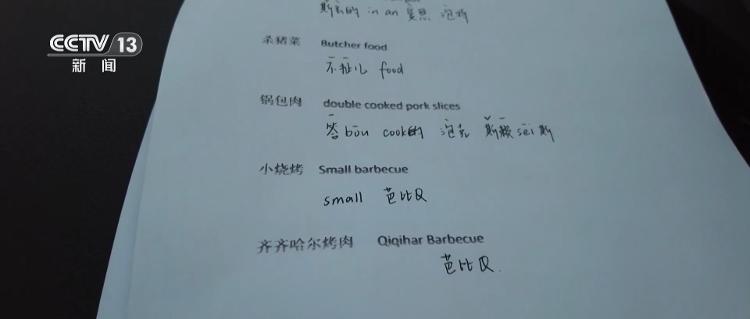 CCTV 13
新闻
斯的 in an 泡
杀猪菜 Butcher food
不扯儿 food
锅包肉 double cooked pork slices
答bōu cook的 泡克 斯 sēi斯
小烧烤 Small barbecue
small 芭比Q
齐齐哈尔烤肉 Qiqihar Barbecue
芭比Q